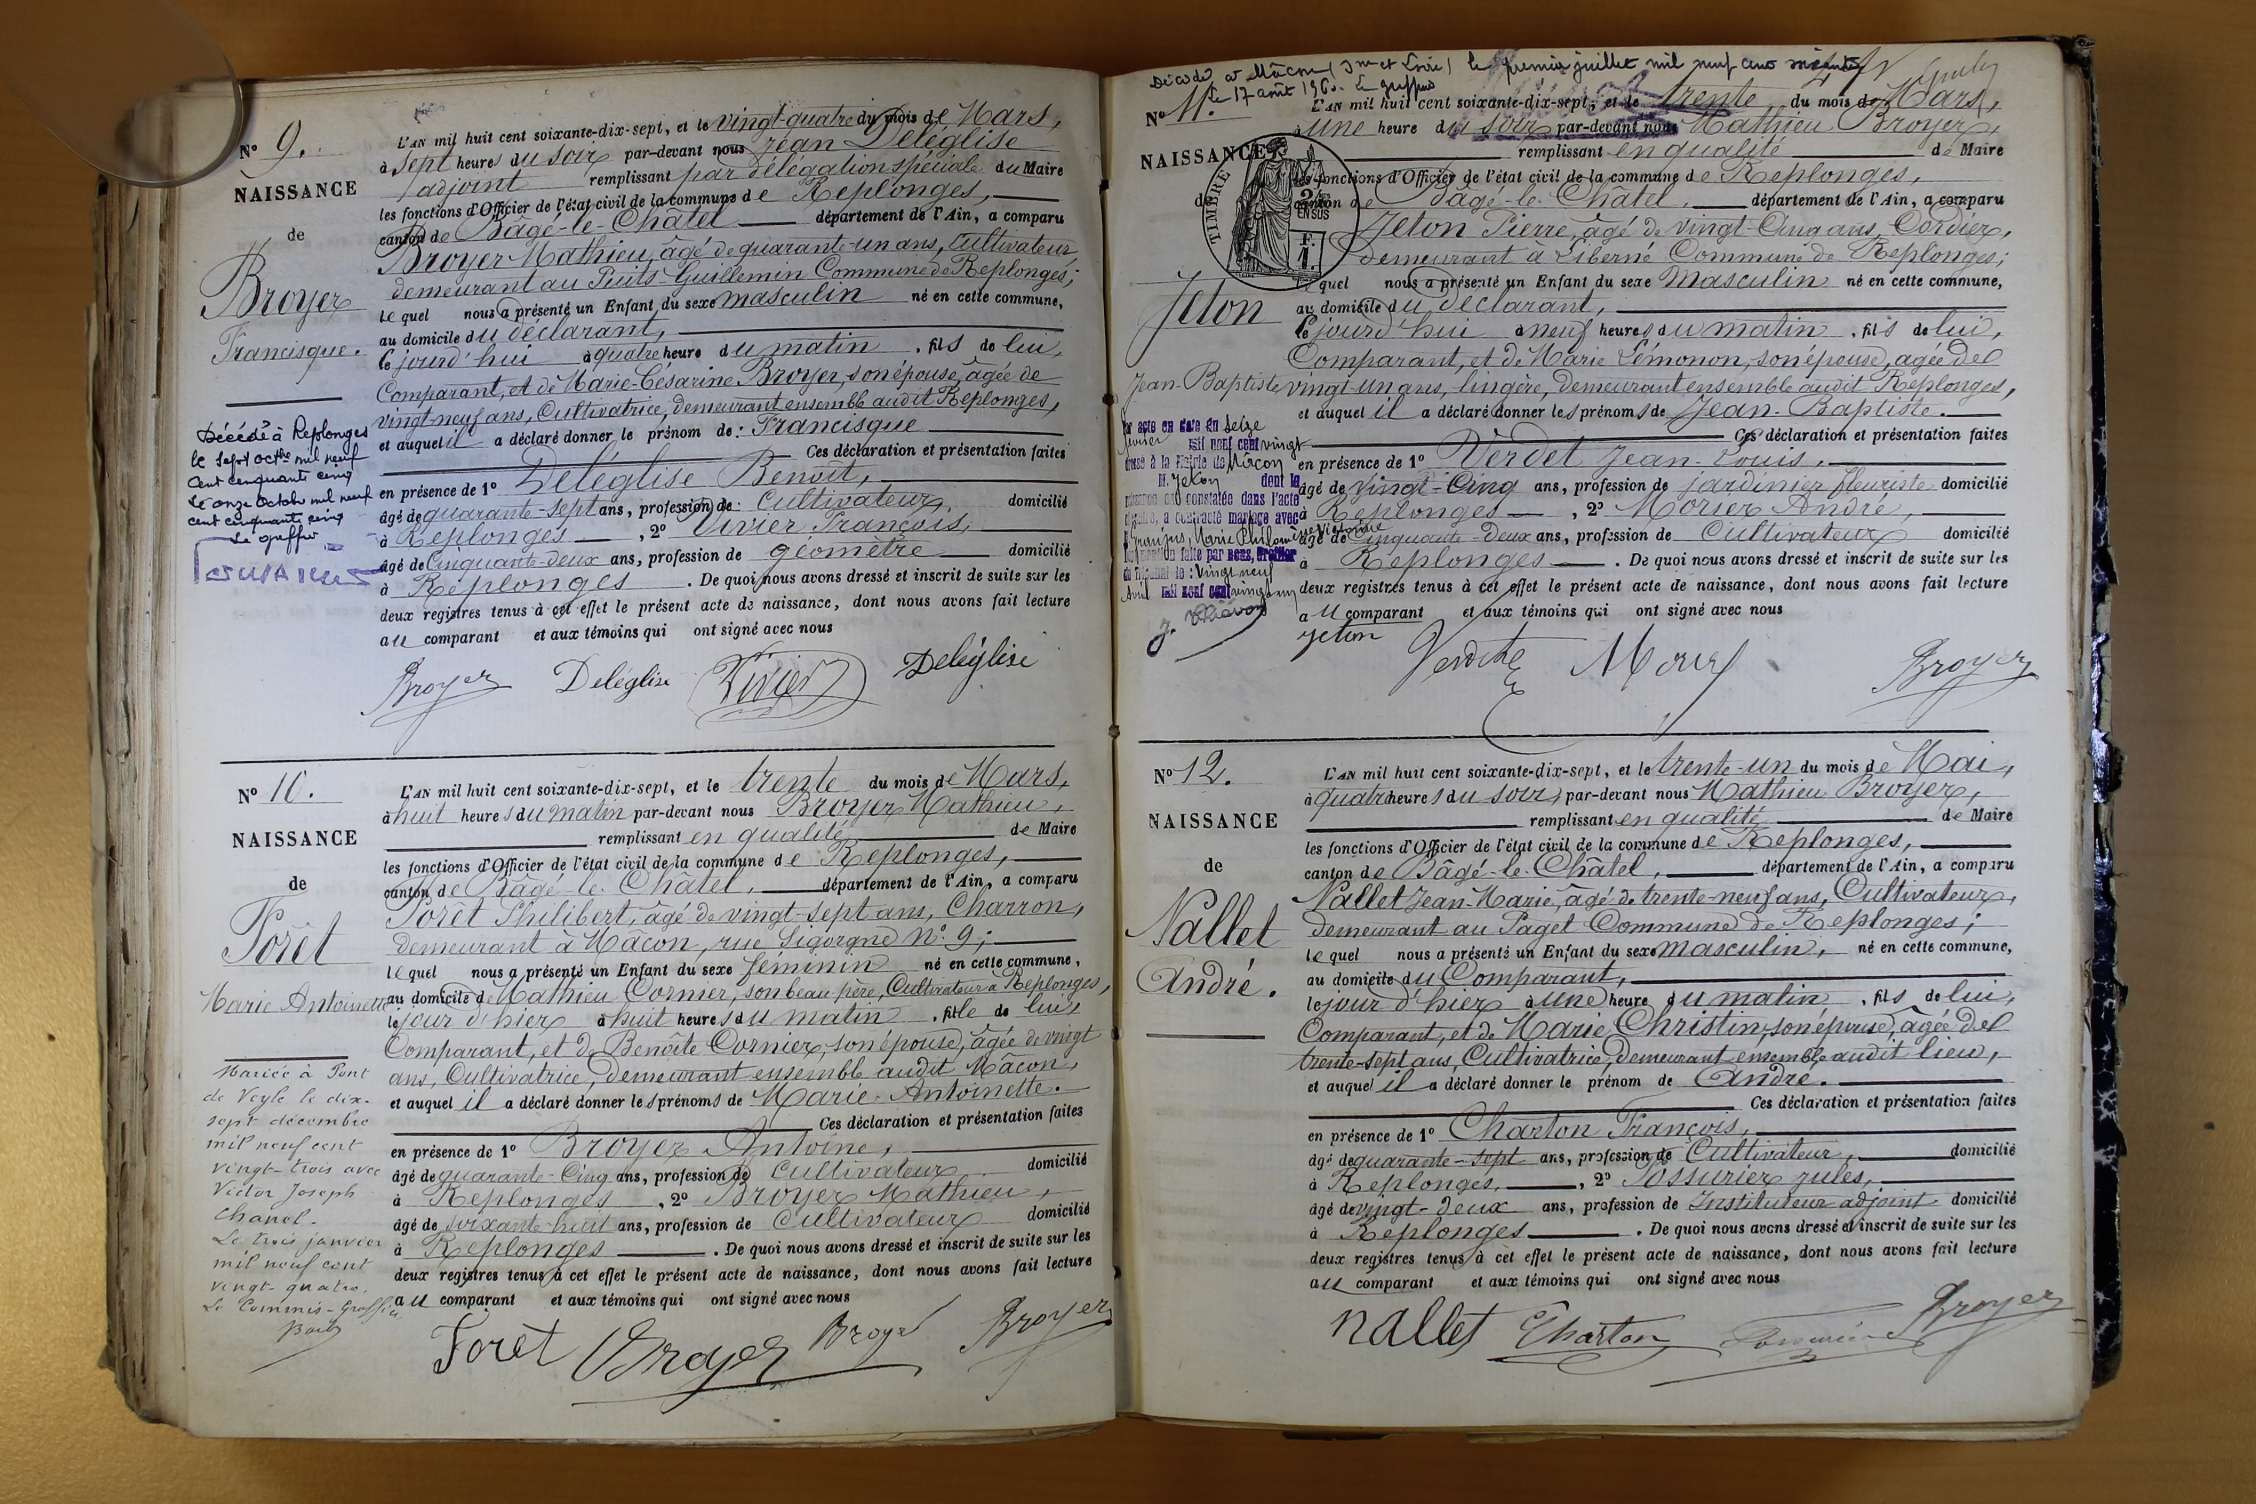 N° 9.
NAISSANCE
de
Broyer
Francisque.
Décédé à Replonges
le sept octbre mil neuf
cent cinquante cinq
Le onze octobre mil neuf
cent cinquante cinq
Le greffier
L'AN mil huit cent soixante-dix-sept, et le vingt-quatre du mois de Mars,
à sept heures du soir par-devant nous Jean Deléglise
adjoint remplissant par délégation spéciale du Maire
les fonctions d'Officier de l'état civil de la commune de Replonges,
canton de Bâgé-le-Châtel département de l'Ain, a comparu
Broyer Mathieu, âgé de quarante-un ans, Cultivateur,
demeurant au Puits-Guillemin Commune de Replonges;
le quel nous a présenté un Enfant du sexe masculin né en cette commune,
au domicile du déclarant,
le jourd'hui à quatre heure du matin, fils de lui,
Comparant, et de Marie-Césarine Broyer, son épouse, âgée de
vingt-neuf ans, Cultivatrice, demeurant ensemble audit Replonges,
et auquel il a déclaré donner le prénom de: Francisque
Ces déclaration et présentation faites
en présence de 1° Deléglise Benoît,
âgé de quarante-sept ans, profession de: Cultivateur, domicilié
à Replonges, 2° Vivier François,
âgé de Cinquante-deux ans, profession de géomètre domicilié
à Replonges. De quoi nous avons dressé et inscrit de suite sur les
deux registres tenus à cet effet le présent acte de naissance, dont nous avons fait lecture
au comparant et aux témoins qui ont signé avec nous
Broyer Deléglise Vivier Deléglise
N° 10.
NAISSANCE
de
Forêt
Marie Antoinette
Mariée à Pont
de Veyle le dix-
sept décembre
mil neuf cent
vingt-trois avec
Victor Joseph
Chanel.
Le trois janvier
mil neuf cent
vingt-quatre.
Le Commis-Greffier
L'AN mil huit cent soixante-dix-sept, et le trente du mois de Mars,
à huit heures du matin par-devant nous Broyer Mathieu,
remplissant en qualité de Maire
les fonctions d'Officier de l'état civil de la commune de Replonges,
canton de Bâgé-le-Châtel, département de l'Ain, a comparu
Forêt Philibert, âgé de vingt-sept ans, Charron,
demeurant à Mâcon, rue Sigorgne N° 9;
le quel nous a présenté un Enfant du sexe féminin né en cette commune,
au domicile de Mathieu Cornier, son beau père, Cultivateur à Replonges,
le jour d'hier à huit heures du matin, fille de lui,
Comparant, et de Benoîte Cornier, son épouse, âgée de vingt
ans, Cultivatrice, demeurant ensemble audit Mâcon,
et auquel il a déclaré donner les prénoms de Marie-Antoinette.
Ces déclaration et présentation faites
en présence de 1° Broyer Antoine,
âgé de quarante-Cinq ans, profession de Cultivateur domicilié
à Replonges, 2° Broyer Mathieu,
âgé de soixante-huit ans, profession de Cultivateur domicilié
à Replonges. De quoi nous avons dressé et inscrit de suite sur les
deux registres tenus à cet effet le présent acte de naissance, dont nous avons fait lecture
au comparant et aux témoins qui ont signé avec nous
Forêt Broyer Broyer Broyer
Décédé à Mâcon (Sne et Loire) le premier juillet mil neuf cent soixante
Le 17 août 1960. Le greffier
N° 11.
NAISSANCE
de
TIMBRE
2/10 EN SUS
F. 1.
Jeton
Jean-Baptiste
Par acte en date du seize
février mil neuf cent vingt
dressé à la Mairie de Mâcon
M. Jeton dont la
naissance est constatée dans l'acte
a contracté mariage avec
Marie Philomène Victorine
faite par nous, Greffier
du Tribunal le: Vingt neuf
Avril mil neuf cent vingt
L'AN mil huit cent soixante-dix-sept, et le trente du mois de Mars,
à une heure du soir par-devant nous Mathieu Broyer,
remplissant en qualité de Maire
les fonctions d'Officier de l'état civil de la commune de Replonges,
canton de Bâgé-le-Châtel, département de l'Ain, a comparu
Jeton Pierre, âgé de vingt-Cinq ans, Cordier,
demeurant à Liberné Commune de Replonges;
le quel nous a présenté un Enfant du sexe Masculin né en cette commune,
au domicile du déclarant,
le jourd'hui à neuf heures du matin, fils de lui,
Comparant, et de Marie Lémonon, son épouse, âgée de
vingt-un ans, lingère, demeurant ensemble audit Replonges,
et auquel il a déclaré donner les prénoms de Jean-Baptiste.
Ces déclaration et présentation faites
en présence de 1° Verdet Jean-Louis,
âgé de vingt-Cinq ans, profession de jardinier fleuriste domicilié
à Replonges, 2° Morier André,
âgé de Cinquante-Deux ans, profession de Cultivateur domicilié
à Replonges. De quoi nous avons dressé et inscrit de suite sur les
deux registres tenus à cet effet le présent acte de naissance, dont nous avons fait lecture
au comparant et aux témoins qui ont signé avec nous
Jeton Broyer
N° 12.
NAISSANCE
de
Nallet
André.
L'AN mil huit cent soixante-dix-sept, et le trente-un du mois de Mai,
à quatre heures du soir, par-devant nous Mathieu Broyer,
remplissant en qualité de Maire
les fonctions d'Officier de l'état civil de la commune de Replonges,
canton de Bâgé-le-Châtel, département de l'Ain, a comparu
Nallet Jean-Marie, âgé de trente-neuf ans, Cultivateur,
demeurant au Paget Commune de Replonges;
le quel nous a présenté un Enfant du sexe masculin, né en cette commune,
au domicile du Comparant,
le jour d'hier à une heure du matin, fils de lui,
Comparant, et de Marie Christin, son épouse, âgée de
trente-sept ans, Cultivatrice, demeurant ensemble audit lieu,
et auquel il a déclaré donner le prénom de André.
Ces déclaration et présentation faites
en présence de 1° Charton François,
âgé de quarante-sept ans, profession de Cultivateur, domicilié
à Replonges, 2° Fossurier Jules,
âgé de vingt-deux ans, profession de Instituteur adjoint domicilié
à Replonges. De quoi nous avons dressé et inscrit de suite sur les
deux registres tenus à cet effet le présent acte de naissance, dont nous avons fait lecture
au comparant et aux témoins qui ont signé avec nous
Nallet Charton Broyer